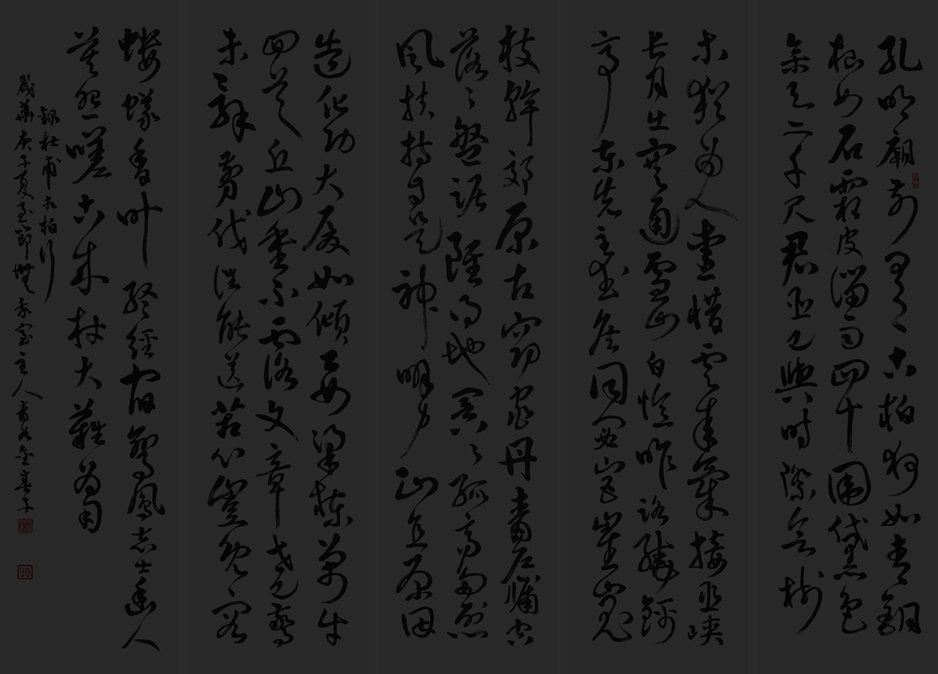 孔明廟前有老柏柯如青銅
根如石霜皮溜雨四十圍黛色
參天二千尺君臣已與時際會樹
木猶為人愛惜雲來氣接巫峽
長月出寒通雪山白憶昨路繞錦
亭東先主武侯同閟宮崔嵬
枝幹郊原古窈窕丹青戶牖空
落々盤踞雖得地冥々孤高多烈
風扶持自是神明力正直原因
造化功大廈如傾要梁棟萬牛
回首丘山重不露文章世已驚
未辭剪伐誰能送苦心豈免容
螻蟻香葉終經宿鸞鳳志士幽人
莫怨嗟古來材大難為用
錄杜甫古柏行
歲華庚子夏至節室主人金春子